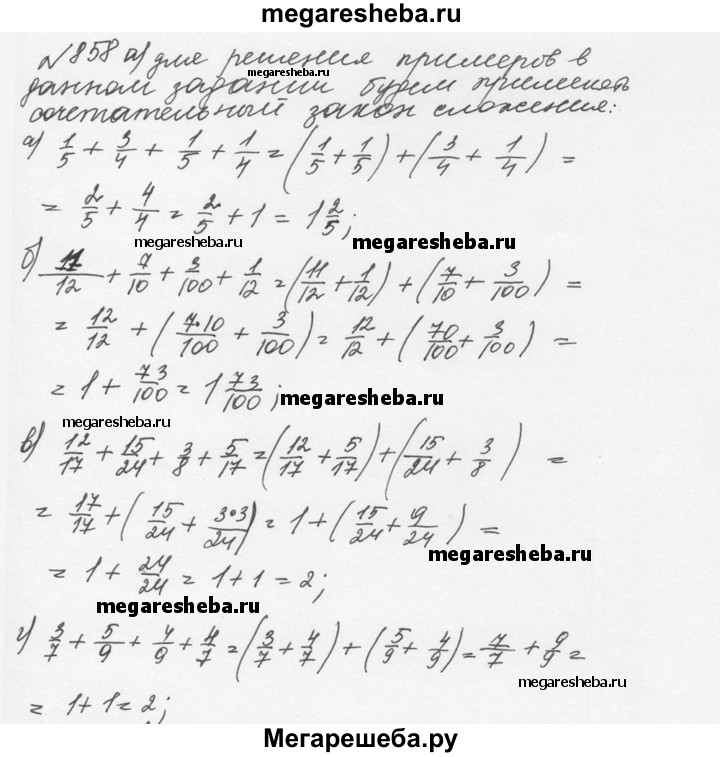 megaresheba.ru
№858 а) для решения примеров в
megaresheba.ru
данном задании будем применять
сочетательный закон сложения:
а) 1/5 + 3/4 + 1/5 + 1/4 = (1/5 + 1/5) + (3/4 + 1/4) =
= 2/5 + 4/4 = 2/5 + 1 = 1 2/5;
megaresheba.ru megaresheba.ru
б) 11/12 + 7/10 + 3/100 + 1/12 = (11/12 + 1/12) + (7/10 + 3/100) =
= 12/12 + (7·10/100 + 3/100) = 12/12 + (70/100 + 3/100) =
= 1 + 73/100 = 1 73/100; megaresheba.ru
megaresheba.ru
в) 12/17 + 15/24 + 3/8 + 5/17 = (12/17 + 5/17) + (15/24 + 3/8) =
= 17/17 + (15/24 + 3·3/24) = 1 + (15/24 + 9/24) =
megaresheba.ru
= 1 + 24/24 = 1 + 1 = 2;
megaresheba.ru
г) 3/7 + 5/9 + 4/9 + 4/7 = (3/7 + 4/7) + (5/9 + 4/9) = 7/7 + 9/9 =
megaresheba.ru
= 1 + 1 = 2;
Мегарешеба.ру